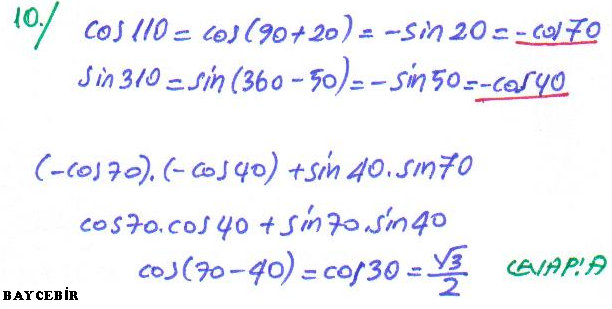 10./ cos110 = cos(90+20) = -sin20 = -cos70
sin310 = sin(360-50) = -sin50 = -cos40
(-cos70).(-cos40) + sin40.sin70
cos70.cos40 + sin70.sin40
cos(70-40) = cos30 = √3/2 CEVAP:A
BAYCEBİR